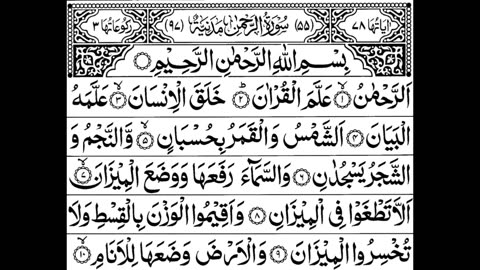 اٰیَاتُهَا ۷۸ (۵۵) سُوْرَةُ الرَّحْمٰنِ مَدَنِیَّةٌ (۹۷) رُكُوْعَاتُهَا ۳
بِسْمِ اللهِ الرَّحْمٰنِ الرَّحِیْمِ
اَلرَّحْمٰنُ ۱ عَلَّمَ الْقُرْاٰنَ ۲ خَلَقَ الْاِنْسَانَ ۳ عَلَّمَهُ
الْبَیَانَ ۴ اَلشَّمْسُ وَالْقَمَرُ بِحُسْبَانٍ ۵ وَّالنَّجْمُ وَ
الشَّجَرُ یَسْجُدٰنِ ۶ وَالسَّمَآءَ رَفَعَهَا وَوَضَعَ الْمِیْزَانَ ۷
اَلَّا تَطْغَوْا فِی الْمِیْزَانِ ۸ وَاَقِیْمُوا الْوَزْنَ بِالْقِسْطِ وَلَا
تُخْسِرُوا الْمِیْزَانَ ۹ وَالْاَرْضَ وَضَعَهَا لِلْاَنَامِ ۱۰